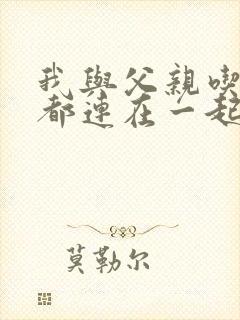 我與父親喫
都連在一起
莫勒尔